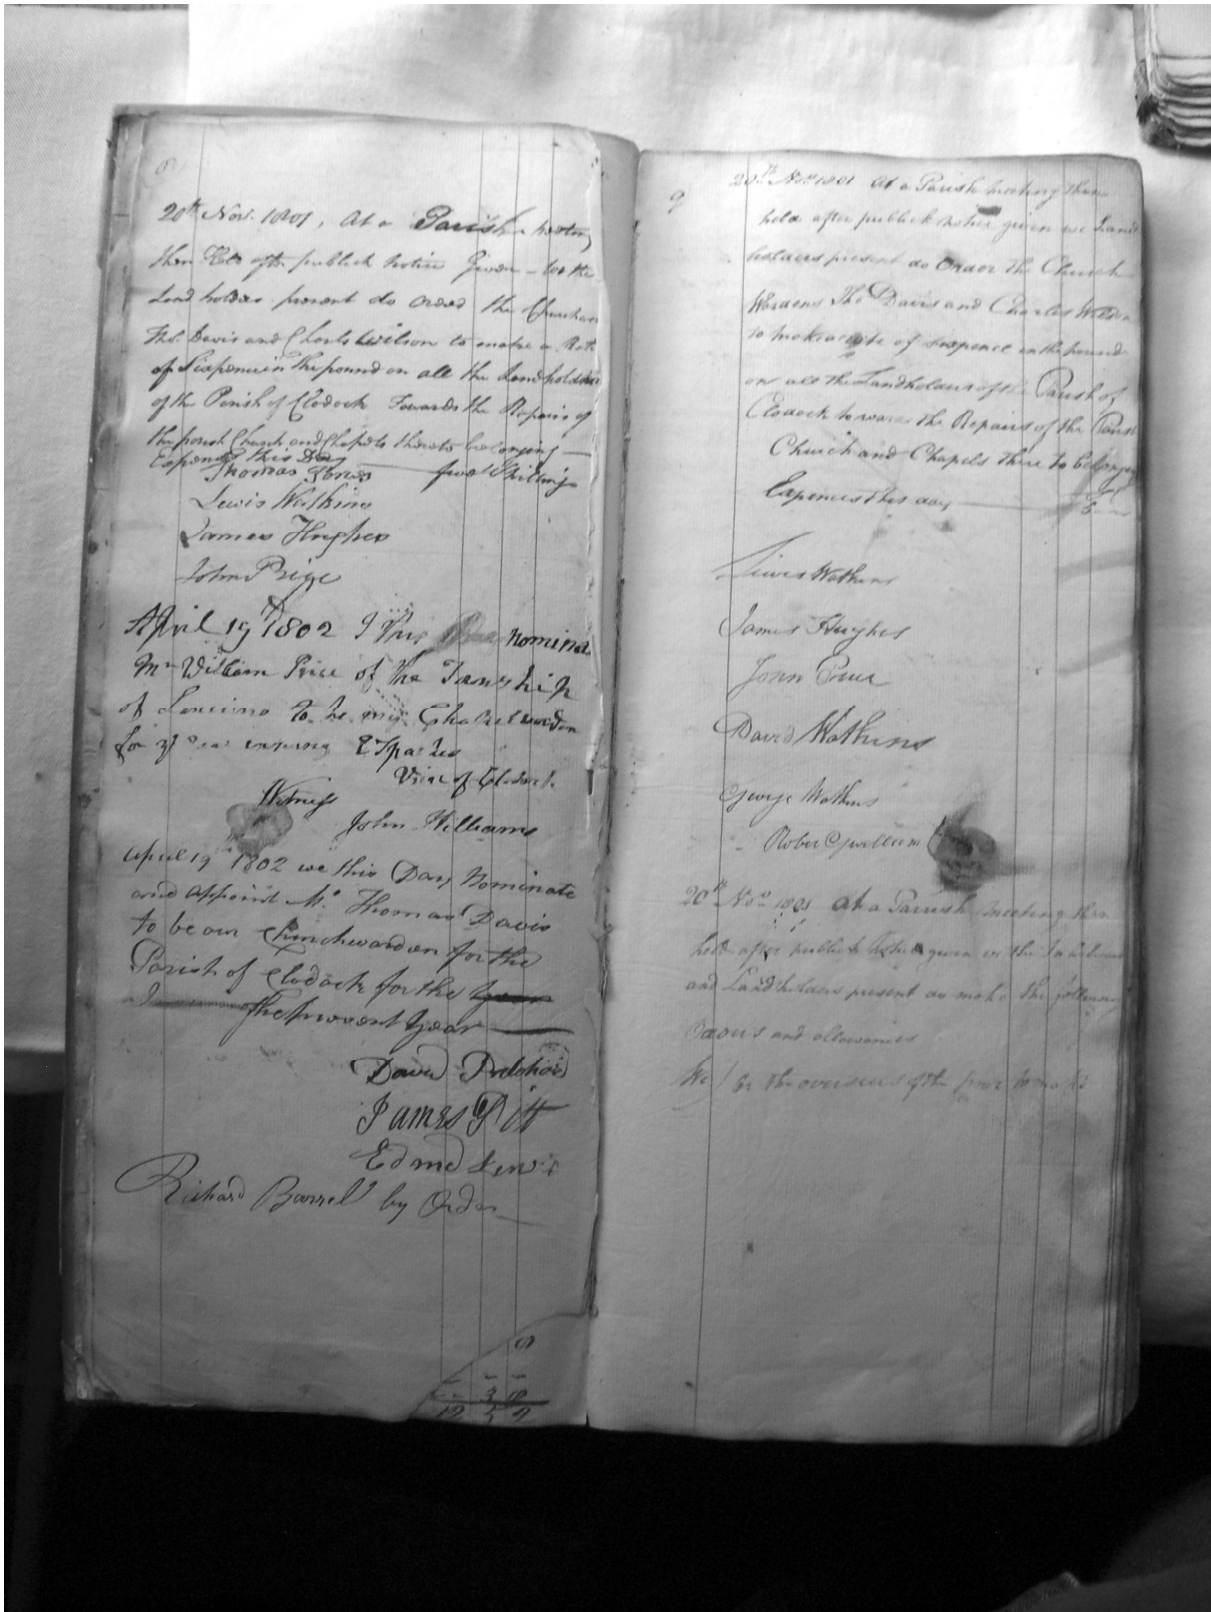 20th Nov. 1801, At a Parish meeting
then Held after publick Notice Given - we the
Land holders present do order the Church
Thos. Davis and Charls Wilson to make a Rate
of Sixpence in the pound on all the Landholders
of the Parish of Clodock Towards the Repairs of
the parish Church and Chapels thereto belonging
Expences this Day five Shillings
Thomas Jones
Lewis Watkins
James Hughes
John Price
April 19th 1802 I this nominate
Mr William Price of the Township
of to be my Chapelwarden
for ye Year ensuing
Vicar of Clodock
Witness
John Williams
April 19th 1802 we this Day Nominate
and appoint Mr Thomas Davis
to be our Churchwarden for the
Parish of Clodock for the year
the present year
David Pritchard
James Pitt
Edmd Lewis
Richard Barrel by Order
9
20th Novr 1801 At a Parish meeting then
held after publick notice given we Land
holders present do Order The Church
Wardens Thos Davis and Charles Wilson
to make a rate of sixpence in the pound
on all the Landholders of the Parish of
Clodock towards the Repairs of the Parish
Church and Chapels there to belonging
Expences this day 5
Lewis Watkins
James Hughes
John Price
David Watkins
George Watkins
Robert Gwillim
20th Novr 1801 At a Parish meeting then
held after publick Notice given we the
and Landholders present do make the following
Orders and allowances
for the overseers of the poor to